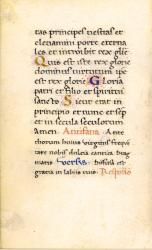 tas principes vestras et
elevamini porte eterna
les et introibit rex glie
Quis est iste rex glorie
dominus virtutum ipse
est rex glorie Gloria
patri et filio et spiritui
sancto Sicut erat in
principio et nunc et sep
et in secula seculorum
amen Antifana Ante
thorum huius virginis freque
tate nobis dulcia cantica drag
matis Versus Diffusa est
gratia in labiis tuis Responso